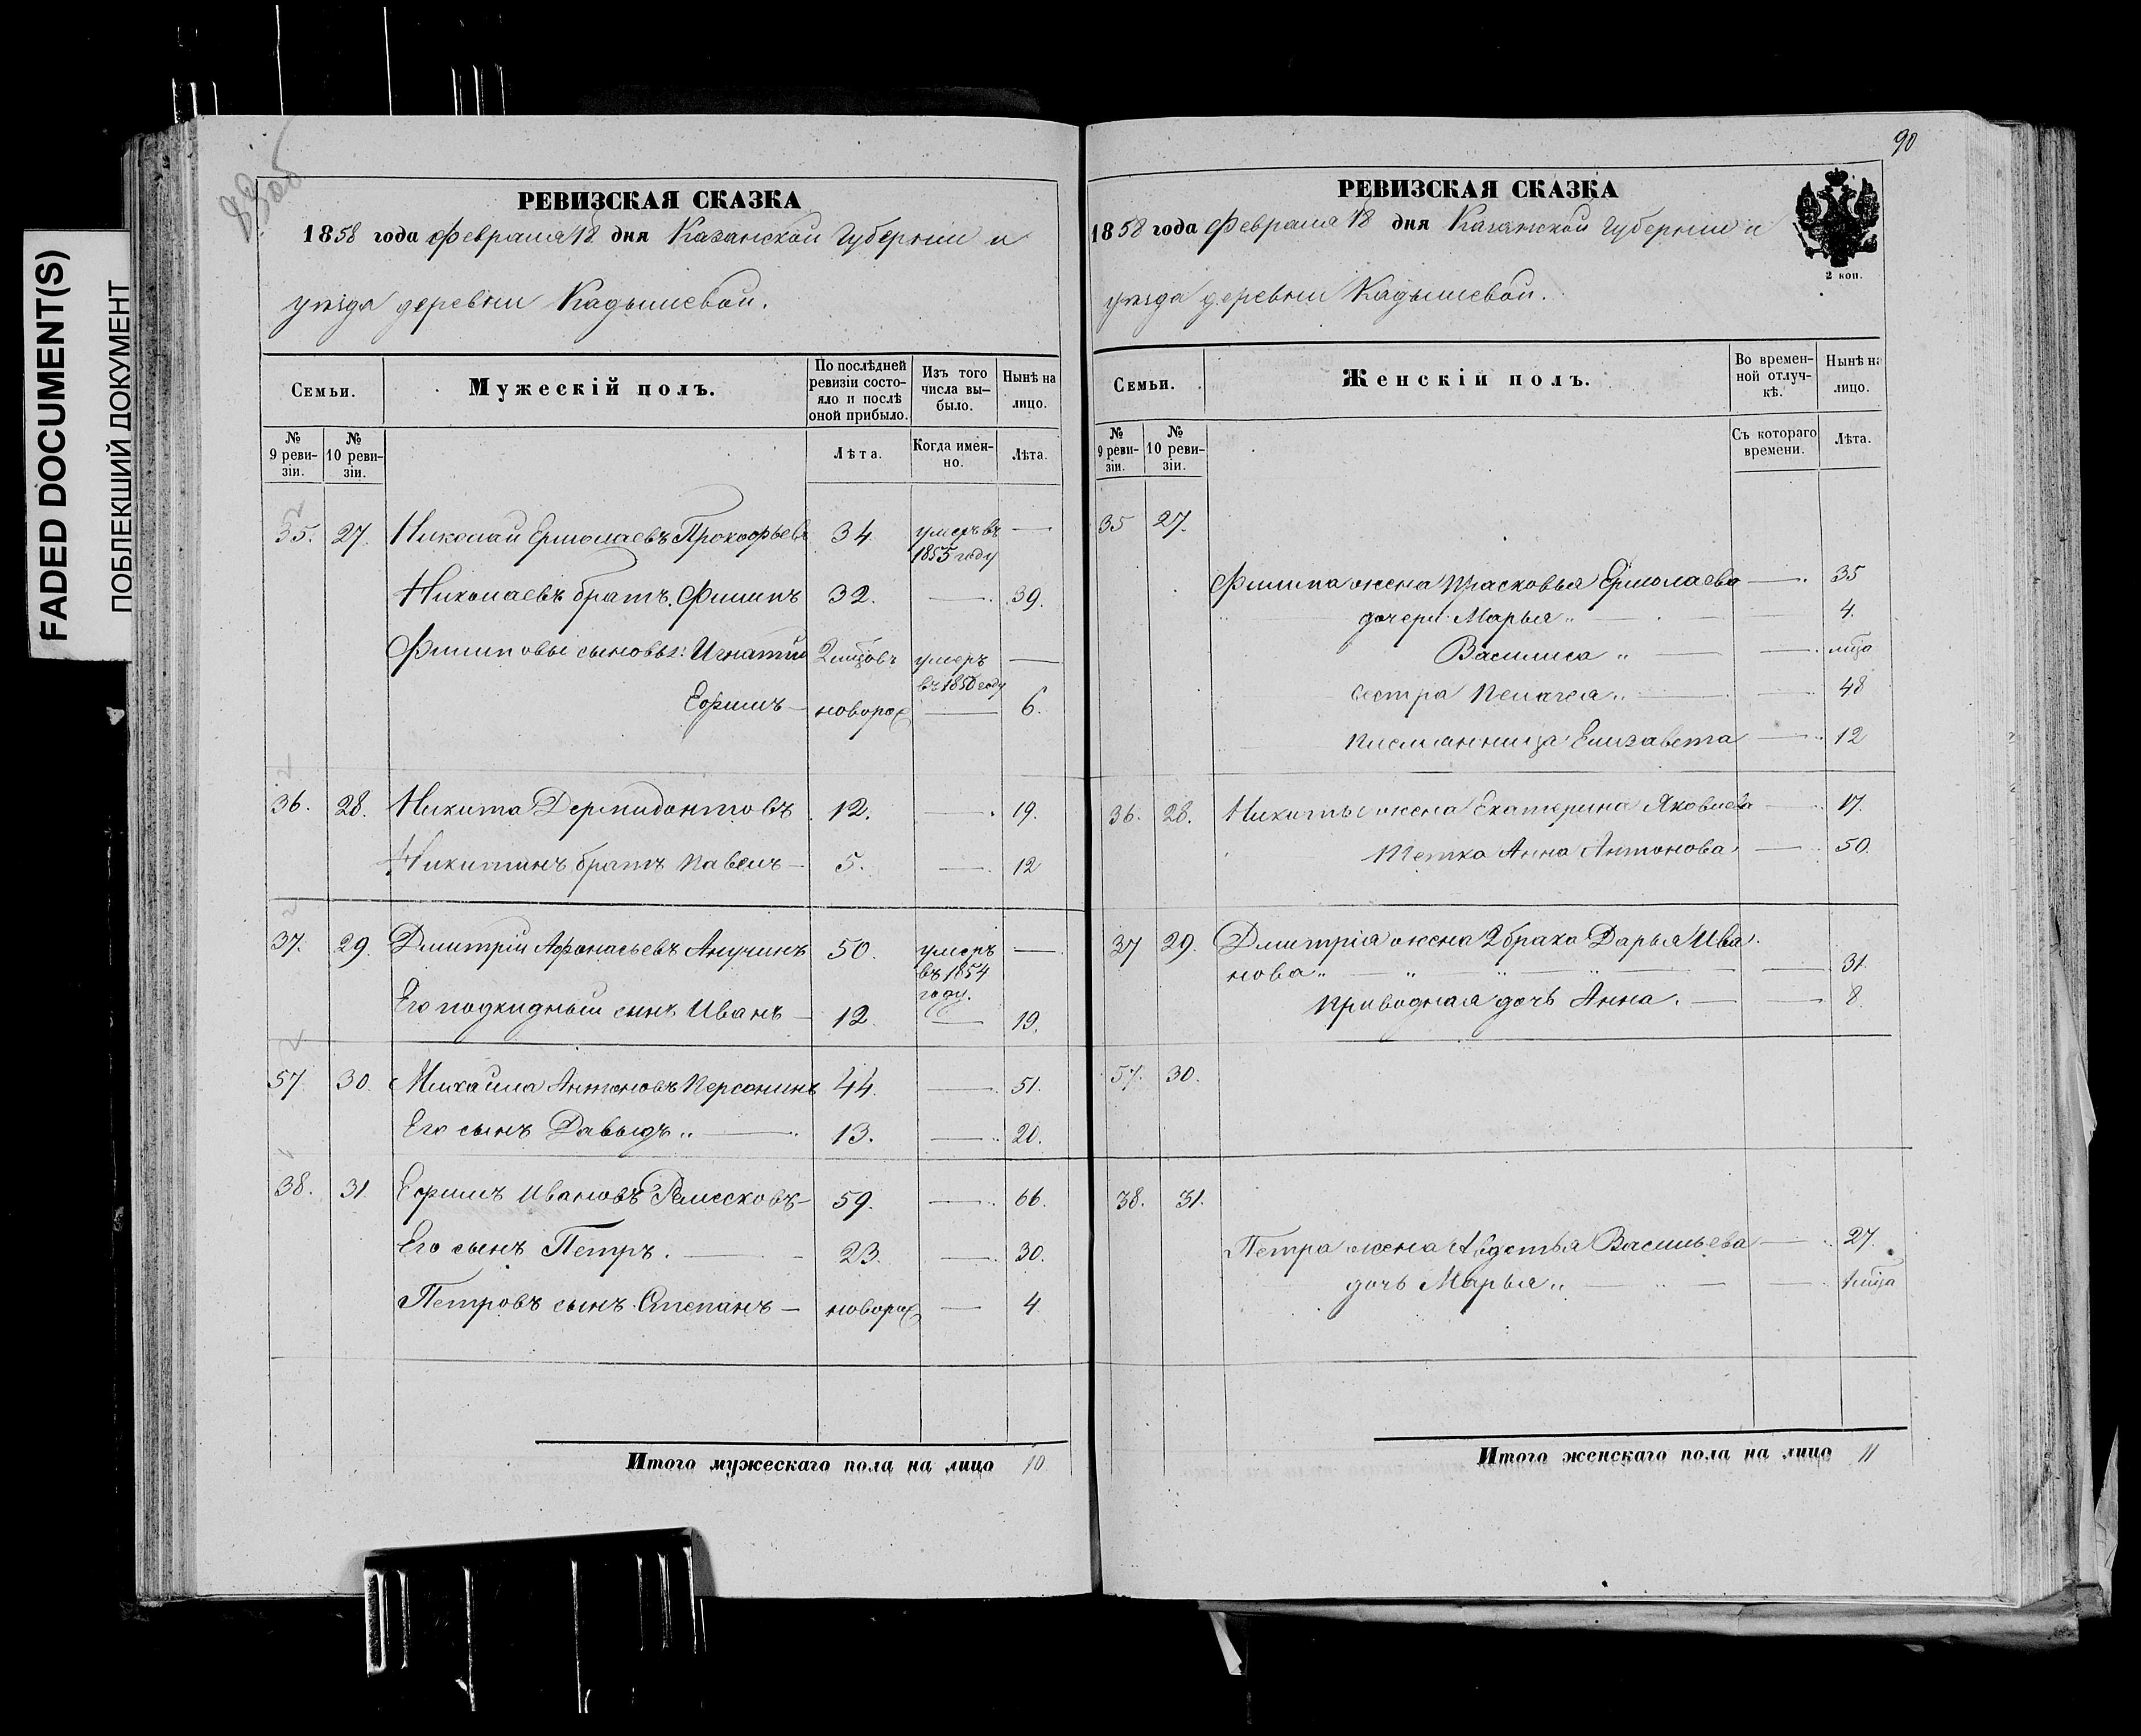 FADED DOCUMENT(S)
ПОБЛЕКШИЙ ДОКУМЕНТ
РЕВИЗСКАЯ СКАЗКА
1858 года Февраля 18 дня Казанской Губернии и
уезда деревни Кадышевой.
Семьи.
Мужескій полъ.
По послѣдней ревизіи состояло и послѣ оной прибыло.
Изъ того числа выбыло.
Нынѣ на лицо.
№ 9 ревизіи.
№ 10 ревизіи.
Лѣта.
Когда именно.
Лѣта.
35. 27. Николай Ермолаевъ Прокофьевъ 34 умеръ въ 1855 году —
Николаевъ братъ Филипъ 32. — 39.
Филиповы сыновья: Игнатий 2 мцовъ умеръ въ 1850 году —
Ефимъ — новорож — 6.
36. 28. Никита Дермидонтовъ 12. — 19.
Никитинъ братъ Павелъ — 5. — 12
37. 29. Дмитрій Афонасьевъ Анучинъ 50. умеръ въ 1854 году. —
Его подкидный сынъ Иванъ — 12 — 19.
57. 30. Михайла Антоновъ Персонинъ 44. — 51.
Его сынъ Давыдъ „ — 13. — 20.
38. 31. Ефимъ Ивановъ — 59. — 66.
Его сынъ Петръ. — 23. — 30.
Петровъ сынъ Степанъ — новорож — 4
Итого мужескаго пола на лицо 10
90
РЕВИЗСКАЯ СКАЗКА
1858 года Февраля 18 дня Казанской Губернии и
уезда деревни Кадышевой.
2 коп.
Семьи.
Женскій полъ.
Во временной отлучкѣ.
Нынѣ на лицо.
№ 9 ревизіи.
№ 10 ревизіи.
Съ котораго времени.
Лѣта.
35 27.
Филипа жена Прасковья Ермолаева — 35
дочери Марья „ — 4.
Василиса „ — мца
сестра Пелагея „ — 48
Елизавета — 12
36. 28. Никиты жена Екатерина Яковлева — 17.
Тетка Анна Антонова — 50.
37 29. Дмитрія жена 2 брака Дарья Ива
нова „ — 31.
Приводная дочь Анна. — 8.
57. 30.
38. 31.
Петра жена Авдотья Васильева — 27.
дочь Марья „ — 1 мца
Итого женскаго пола на лицо 11